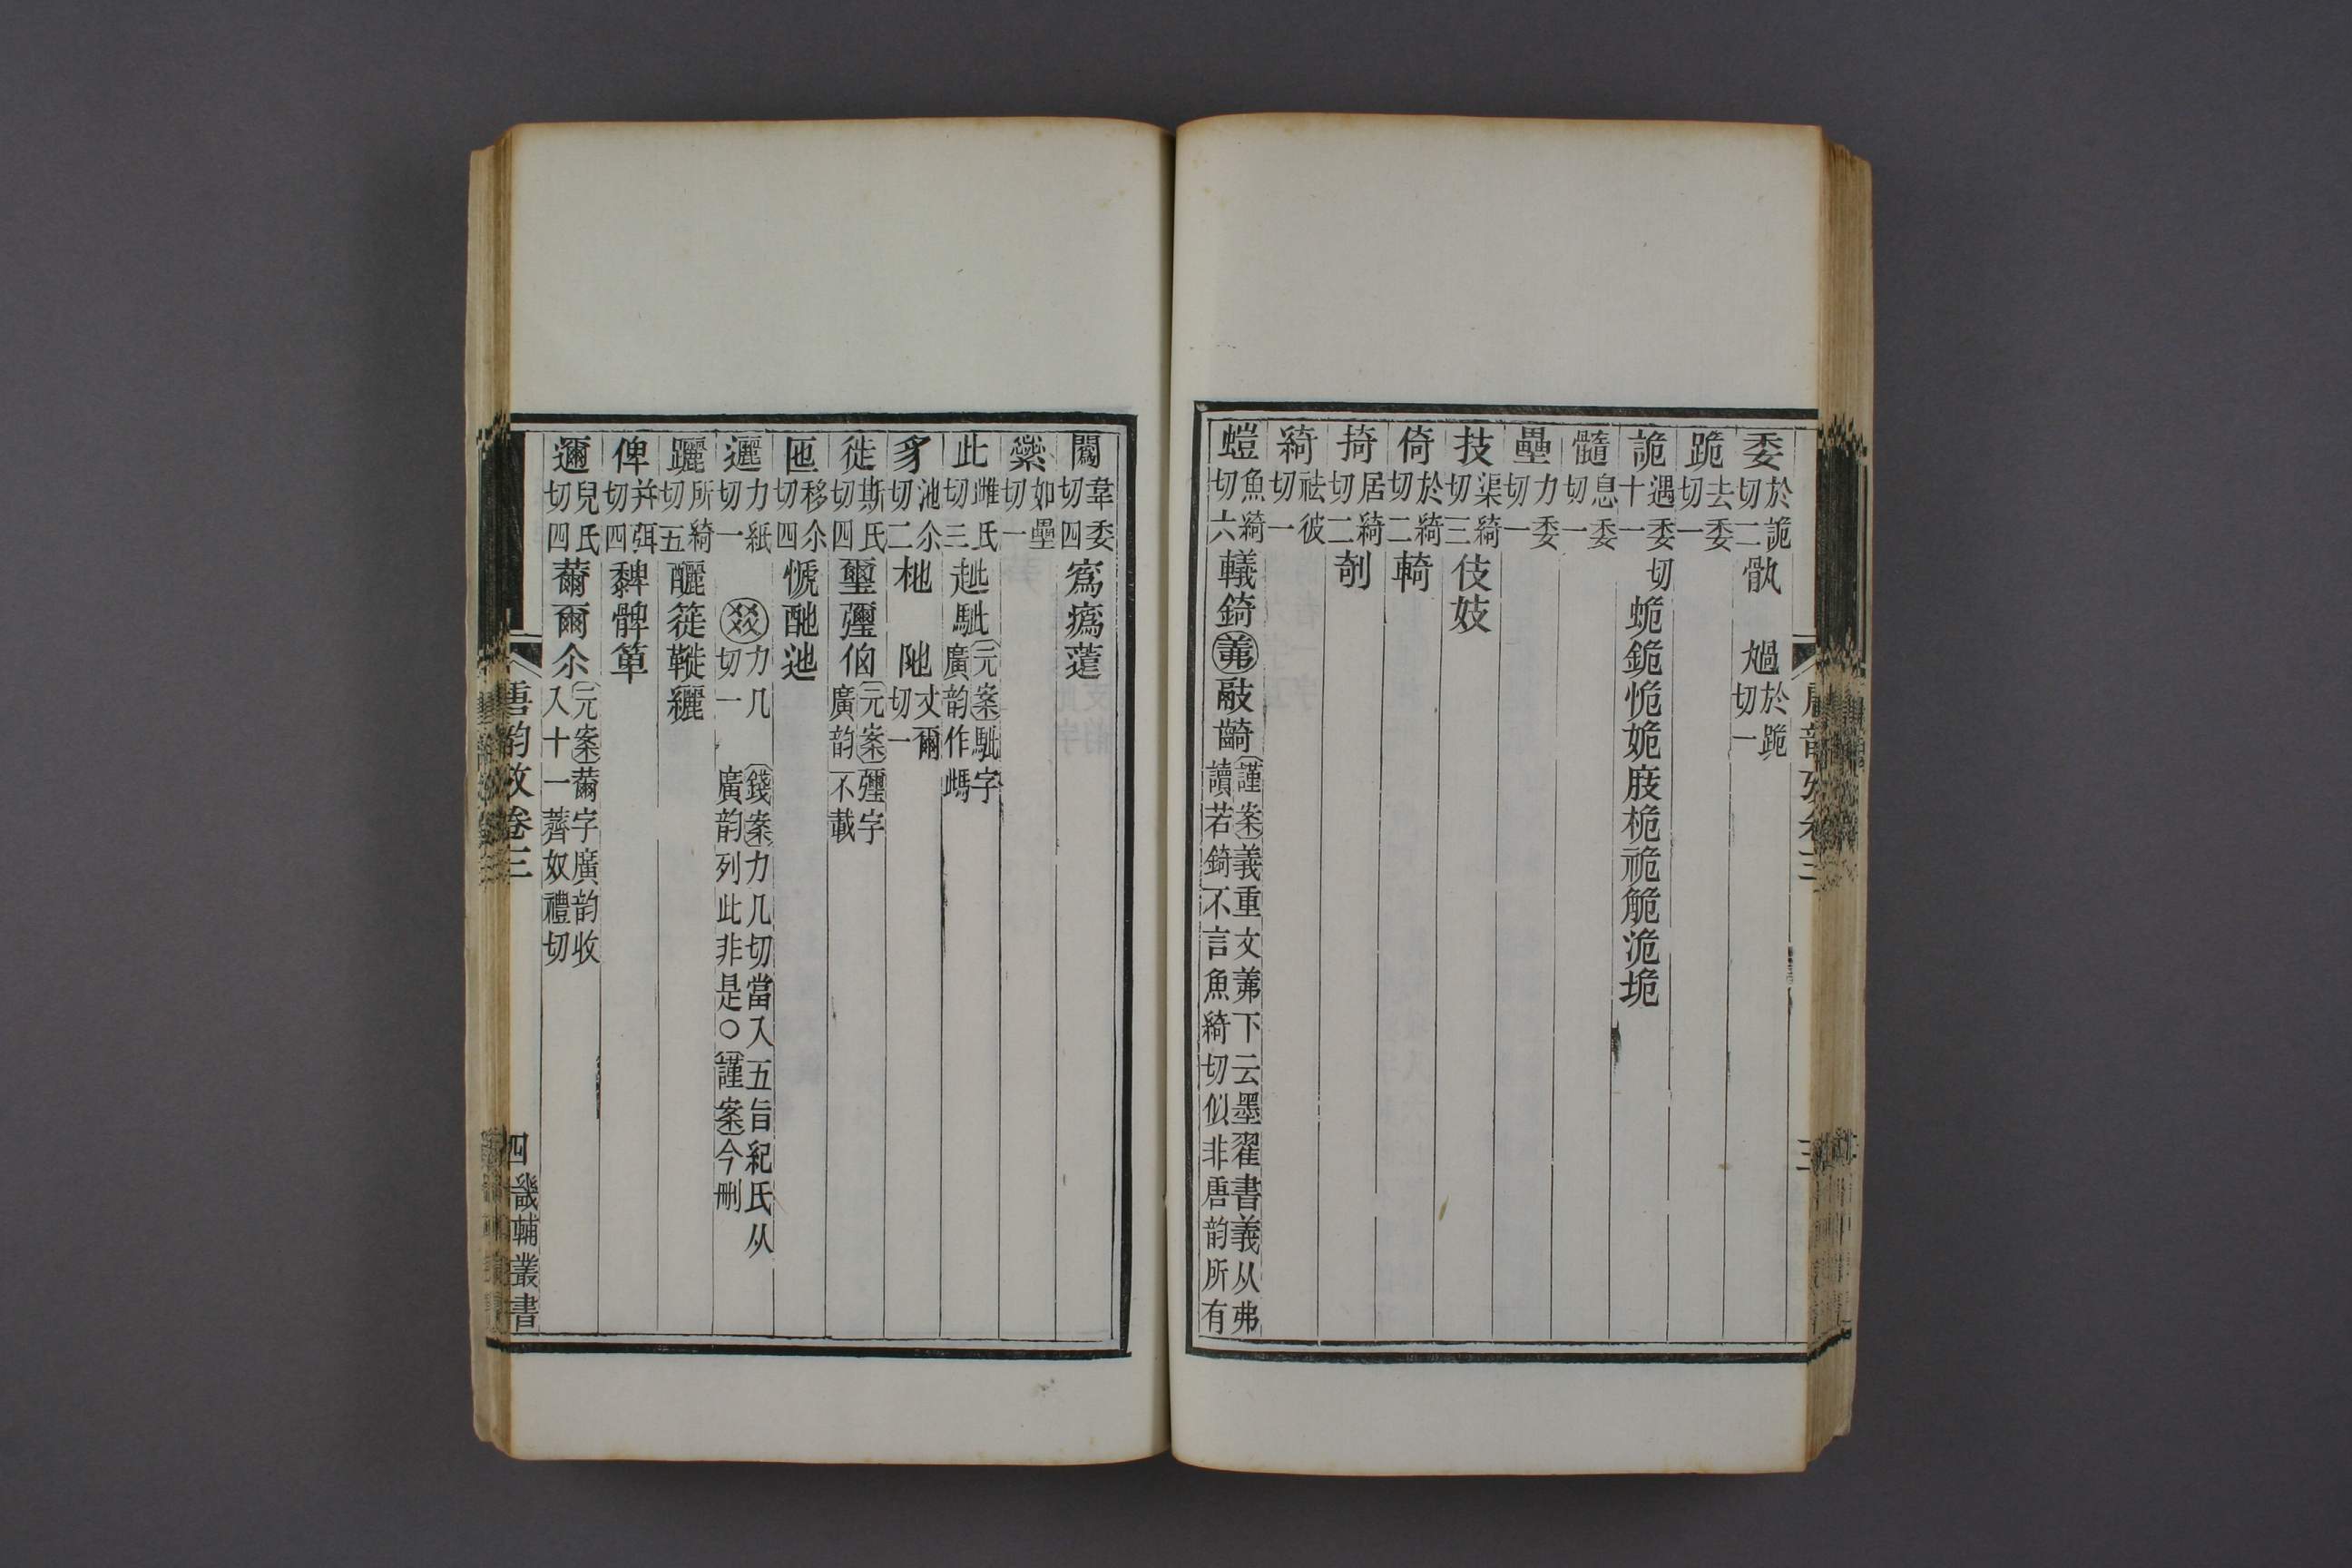 委於詭切二骫 𡯅於跪切一
跪去委切一
詭過委切十一蛫鋔恑姽庪桅祪觤洈垝
髓息委切一
壘力委切一
技渠綺切三伎妓
倚於綺切二輢
掎居綺切二剞
綺祛彼切一
螘魚綺切六轙錡羛敼齮謹案義重文羛下云墨翟書義从弗讀若錡不言魚綺切似非唐韵所有
闠韋委切四寪㾯薳
繠如壘切一
此雌氏切三跐𩢴元案𩢴字廣韵作𩣫
豸池尒切二杝 阤丈爾切一
徙斯氏切四璽壐㑄元案壐字廣韵不載
匜移尒切四㥴酏迆
邐力紙切一 㸚力几切一 錢案力几切當入五旨紀氏从廣韵列此非是○謹案今刪
躧所綺切五釃簁鞭纚
俾并弭切四䴽髀箄
邇兒氏切四薾爾尒元案薾字廣韵收入十一薺奴禮切
唐韵攷卷三
四
畿輔叢書